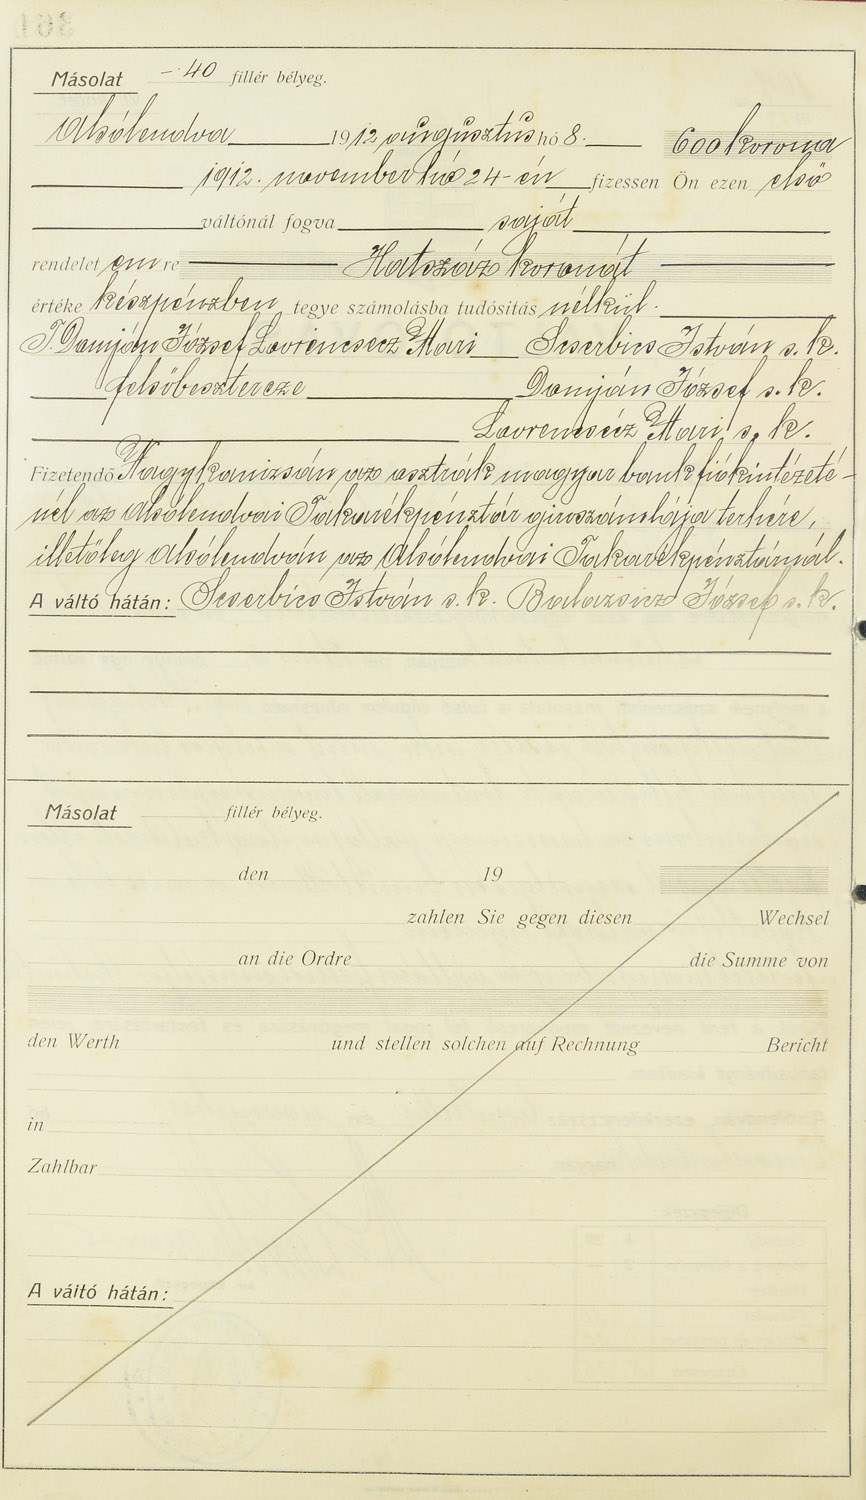 Másolat -·40 fillér bélyeg.
Alsólendva 1912 augusztus hó 8. 600 korona
1912. november hó 24-én fizessen Ön ezen első
váltónál fogva saját
rendelet em re Hatszáz koronát
értéke készpénzben tegye számolásba tudósítás nélkül.
T. Domján József Lovrencsecz Mari Scserbics István s. k.
felsőbesztercze Domján József s. k.
Lovrencsécz Mari s. k.
Fizetendő Nagykanizsán az osztrák magyar bank fiókintézeté-
nél az Alsólendvai Takarékpénztár girószámlája terhére,
illetőleg Alsólendván az Alsólendvai Takarékpénztárnál.
A váltó hátán: Scserbics István s. k. József s. k.
Másolat fillér bélyeg.
den 19
zahlen Sie gegen diesen Wechsel
an die Ordre die Summe von
den Werth und stellen solchen auf Rechnung Bericht
in
Zahlbar
A váitó hátán: